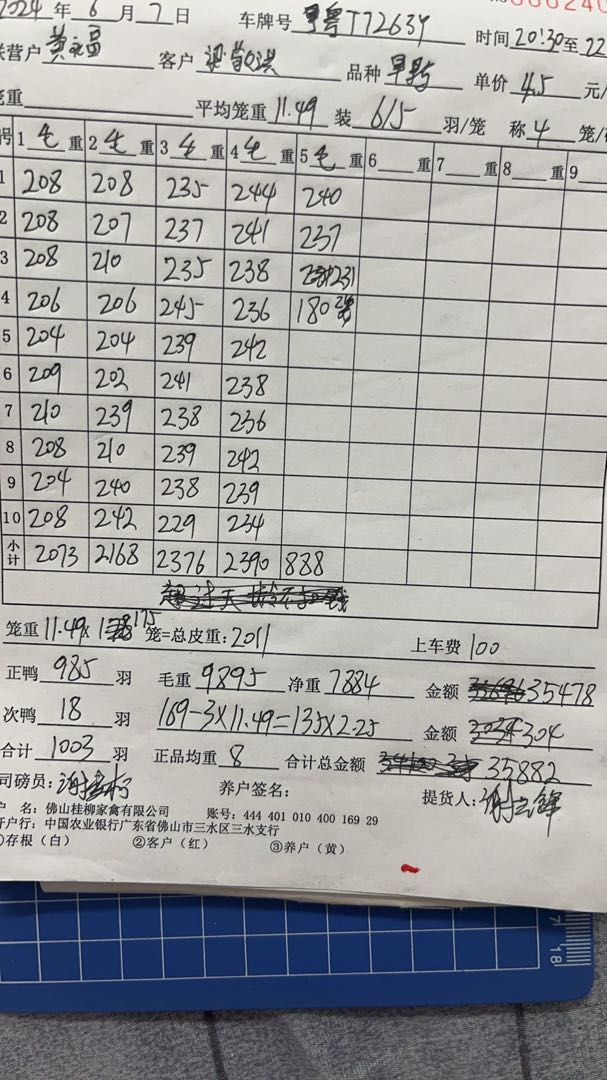 2024 年 6 月 7 日 车牌号 T72639 时间 20:30 至 22
联营户 黄永富 客户 品种 单价 4.5 元/
笼重 平均笼重 11.49 装 6/5 羽/笼 称 4 笼/
号 1 毛 重 2 毛 重 3 毛 重 4 毛 重 5 毛 重 6 重 7 重 8 重 9
1 208 208 235 244 240
2 208 207 237 241 237
3 208 210 235 238 231
4 206 206 245 236 180
5 204 204 239 242
6 209 202 241 238
7 210 239 238 236
8 208 210 239 242
9 204 240 238 239
10 208 242 229 234
小计 2073 2168 2376 2390 888
笼重 11.49 x 175 笼=总皮重: 2011 上车费 100
正鸭 985 羽 毛重 9895 净重 7884 金额 35478
次鸭 18 羽 169-3×11.49=135×2.25 金额 304
合计 1003 羽 正品均重 8 合计总金额 35882
司磅员: 养户签名: 提货人:
户 名: 佛山桂柳家禽有限公司 账号: 444 401 010 400 169 29
开户行: 中国农业银行广东省佛山市三水区三水支行
①存根(白) ②客户(红) ③养户(黄)
7
18